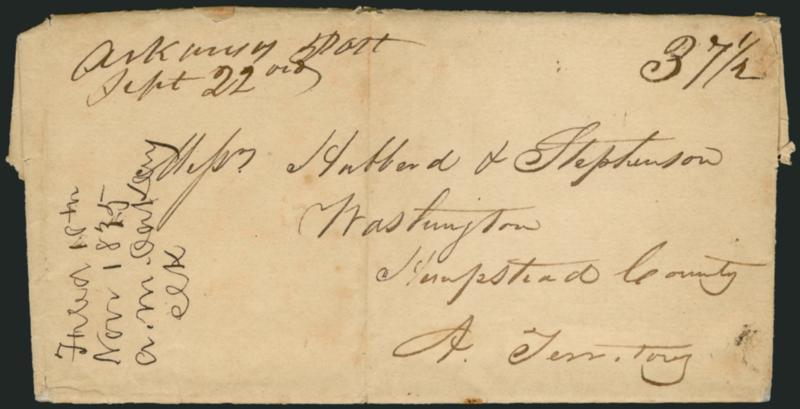 Arkansas Post
Sept 22nd
37 1/2
Messrs Hubberd & Stephenson
Washington
Hempstead County
A. Territory
Filed 18th
Novr 1835
A. M.
Clk